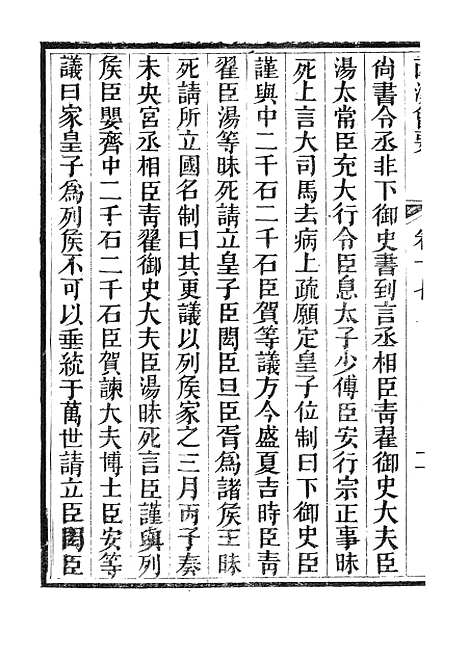 西漢會要 卷十七
尙書令丞非下御史書到言丞相臣靑翟御史大夫臣
湯太常臣充大行令臣息太子少傅臣安行宗正事昧
死上言大司馬去病上疏願定皇子位制曰下御史臣
謹與中二千石二千石臣賀等議方今盛夏吉時臣靑
翟臣湯等昧死請立皇子臣閎臣旦臣胥爲諸侯王昧
死請所立國名制曰其更議以列侯家之三月丙子奏
未央宮丞相臣靑翟御史大夫臣湯昧死言臣謹與列
侯臣嬰齊中二千石二千石臣賀諫大夫博士臣安等
議曰家皇子爲列侯不可以垂統于萬世請立臣閎臣